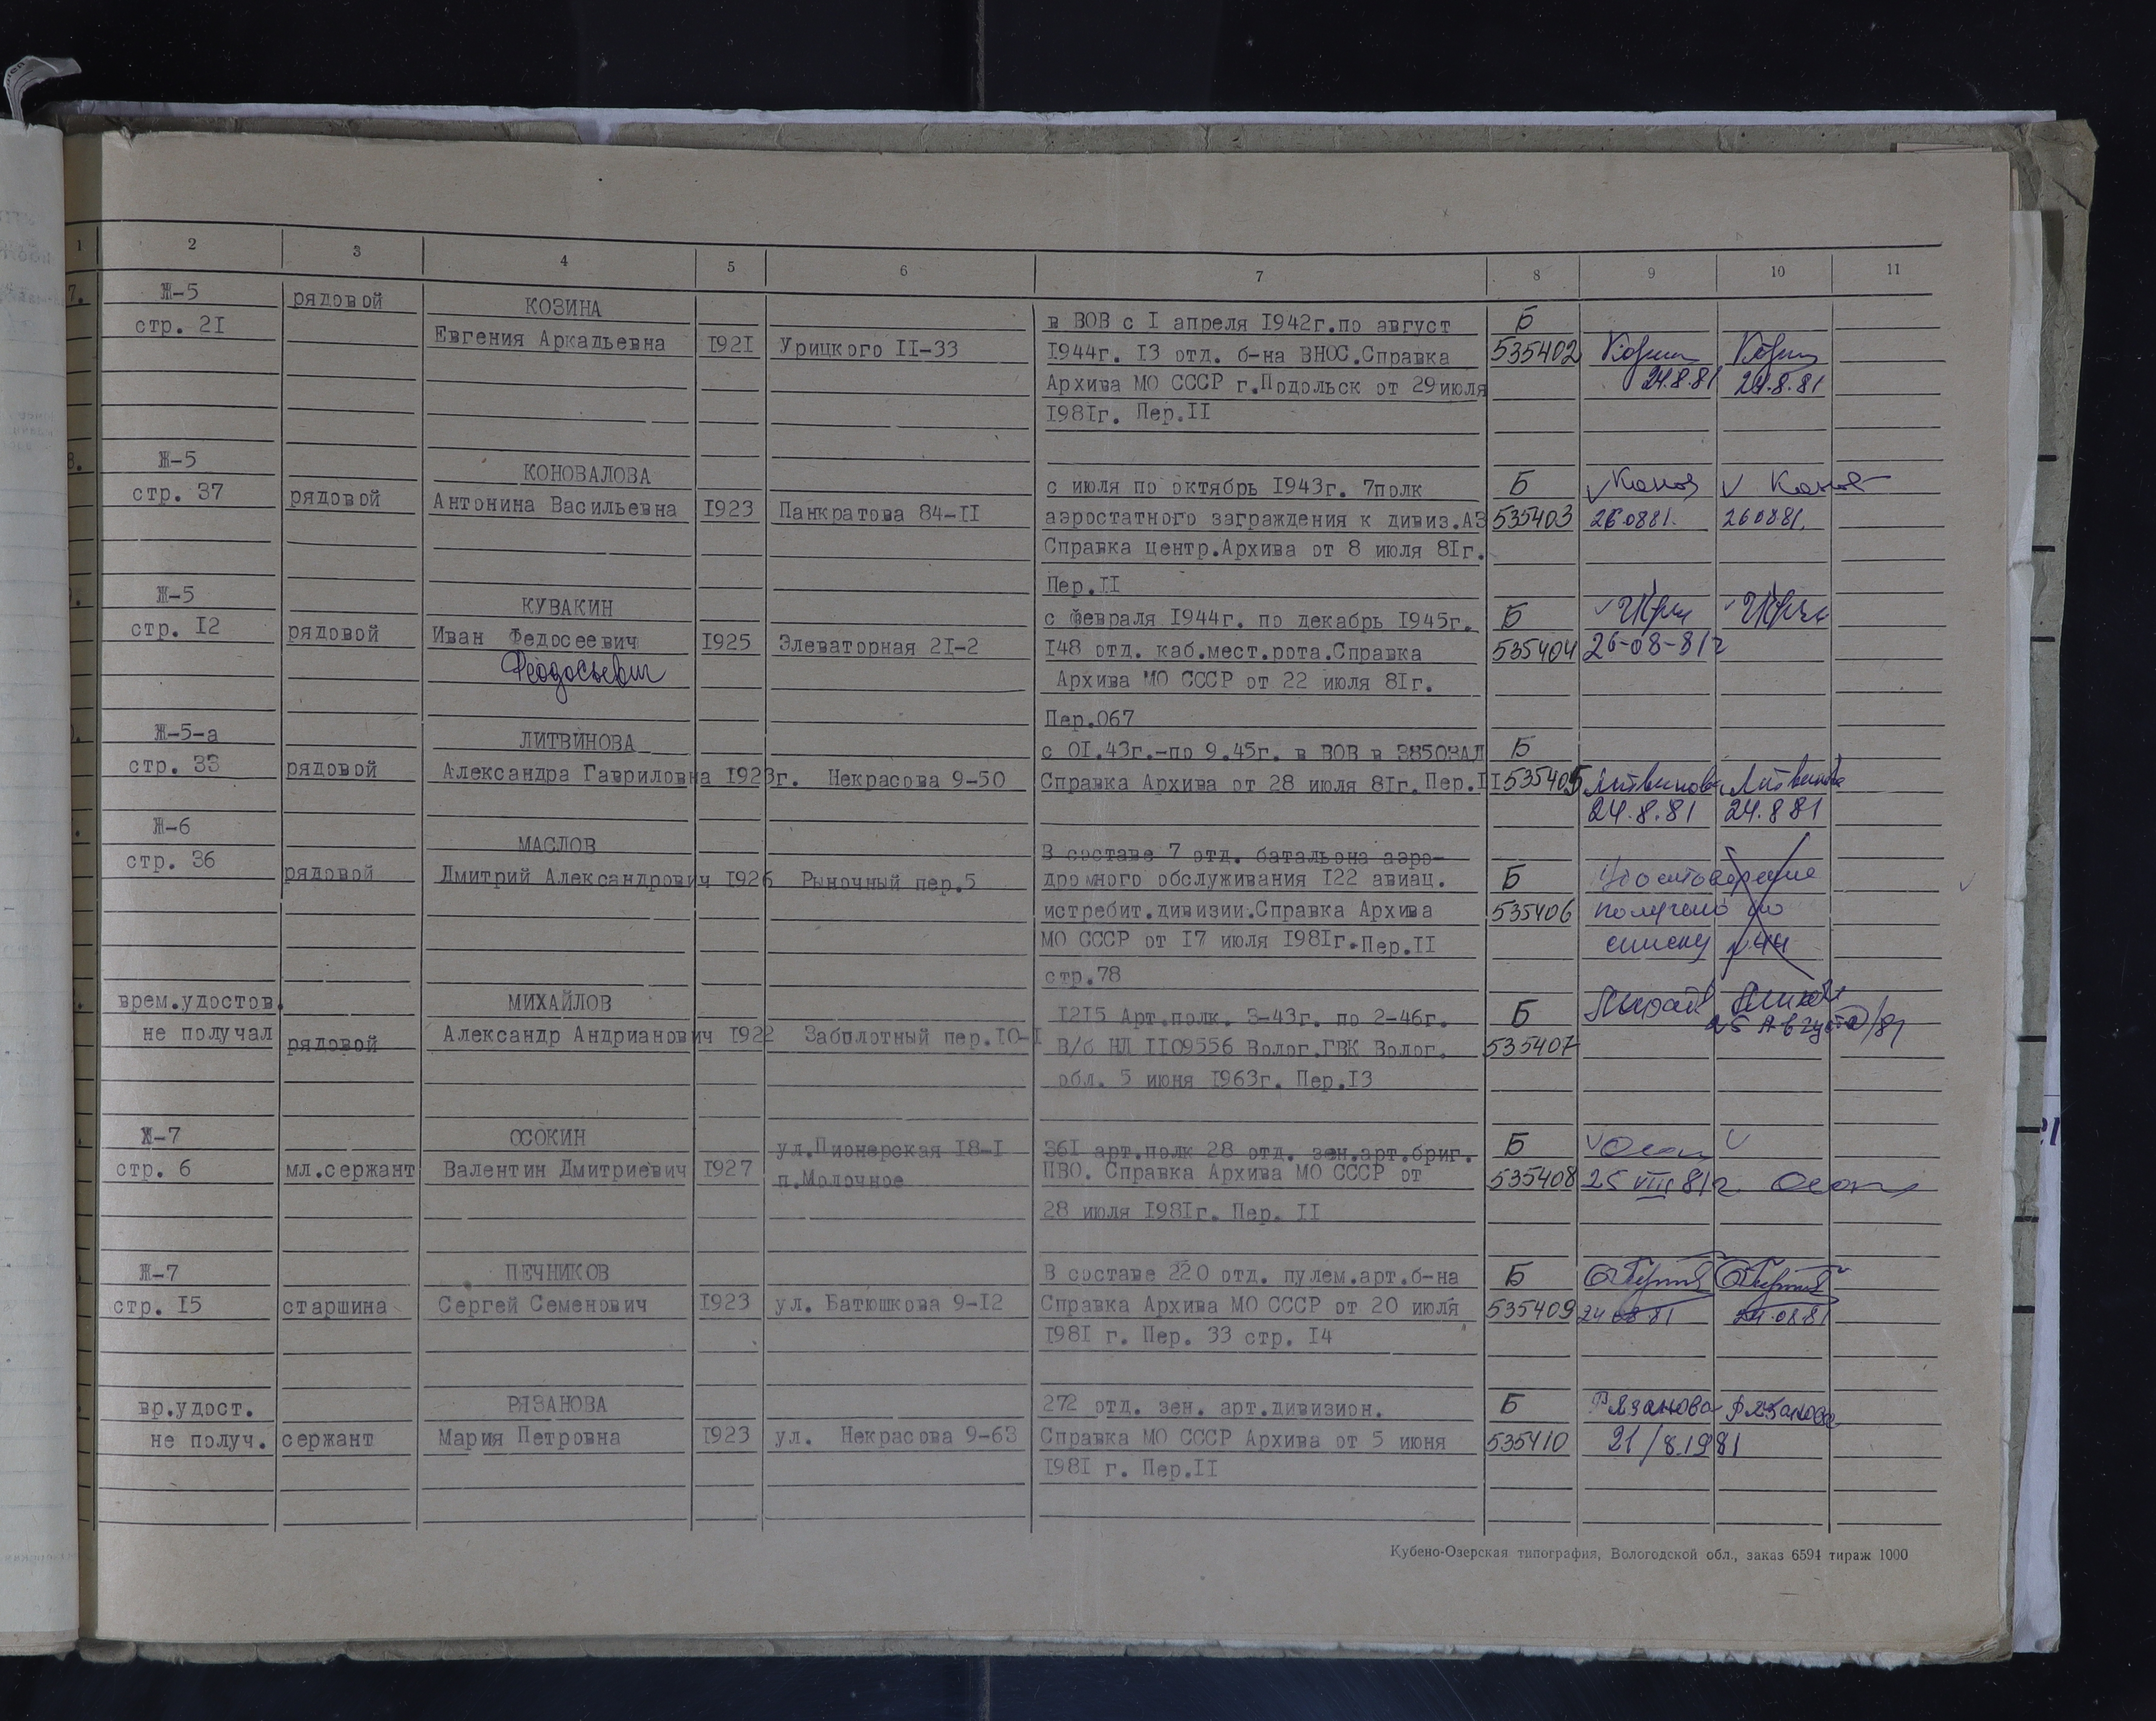 1 2 3 4 5 6 7 8 9 10 11
7. Ж-5 рядовой КОЗИНА в ВОВ с I апреля 1942г.по август Б
стр. 21 Евгения Аркадьевна 1921 Урицкого II-33 1944г. 13 отд. б-на ВНОС.Справка 535402
Архива МО СССР г.Подольск от 29июля 24.8.81 24.8.81
1981г. Пер.II
8. Ж-5 КОНОВАЛОВА с июля по октябрь 1943г. 7полк Б
стр. 37 рядовой Антонина Васильевна 1923 Панкратова 84-II аэростатного заграждения к дивиз.АЗ 535403 26 0881. 260881.
Справка центр.Архива от 8 июля 81г.
Пер.II
Ж-5 КУВАКИН с февраля 1944г. по декабрь 1945г. Б
стр. 12 рядовой Иван Федосеевич 1925 Элеваторная 21-2 148 отд. каб.мест.рота.Справка 535404 26-08-81г
Феодосьевич Архива МО СССР от 22 июля 81г.
Пер.067
Ж-5-а ЛИТВИНОВА с 01.43г.-по 9.45г. в ВОВ в 385ОЗАД Б
стр. 33 рядовой Александра Гавриловна 1923г. Некрасова 9-50 Справка Архива от 28 июля 81г. Пер.II 535405 Литвинова Литвинова
24.8.81 24.8 81
Ж-6 МАСЛОВ В составе 7 отд. батальона аэро-
стр. 36 рядовой Дмитрий Александрович 1926 Рыночный пер.5 дромного обслуживания 122 авиац. Б Удостоверение
истребит.дивизии.Справка Архива 535406 получено по
МО СССР от 17 июля 1981г.Пер.II списку
стр.78
врем.удостов. МИХАЙЛОВ 1215 Арт.полк. 3-43г. по 2-46г. Б
не получал рядовой Александр Андрианович 1922 Заболотный пер.10-I В/б НЛ 1109556 Волог.ГВК Волог. 535407 25 Августа/81
обл. 5 июня 1963г. Пер.13
Ж-7 ОСОКИН ул.Пионерская 18-I 361 арт.полк 28 отд. зен.арт.бриг. Б
стр. 6 мл.сержант Валентин Дмитриевич 1927 п.Молочное ПВО. Справка Архива МО СССР от 535408 25 VIII 81г
28 июля 1981г. Пер. II
Ж-7 ПЕЧНИКОВ В составе 220 отд. пулем.арт.б-на Б
стр. 15 старшина Сергей Семенович 1923 ул. Батюшкова 9-12 Справка Архива МО СССР от 20 июля 535409 24 08 81 24.0881
1981 г. Пер. 33 стр. 14
вр.удост. РЯЗАНОВА 272 отд. зен. арт.дивизион. Б Рязанова Рязанова
не получ. сержант Мария Петровна 1923 ул. Некрасова 9-63 Справка МО СССР Архива от 5 июня 535410 21/8.1981
1981 г. Пер.II
Кубено-Озерская типография, Вологодской обл., заказ 6594 тираж 1000